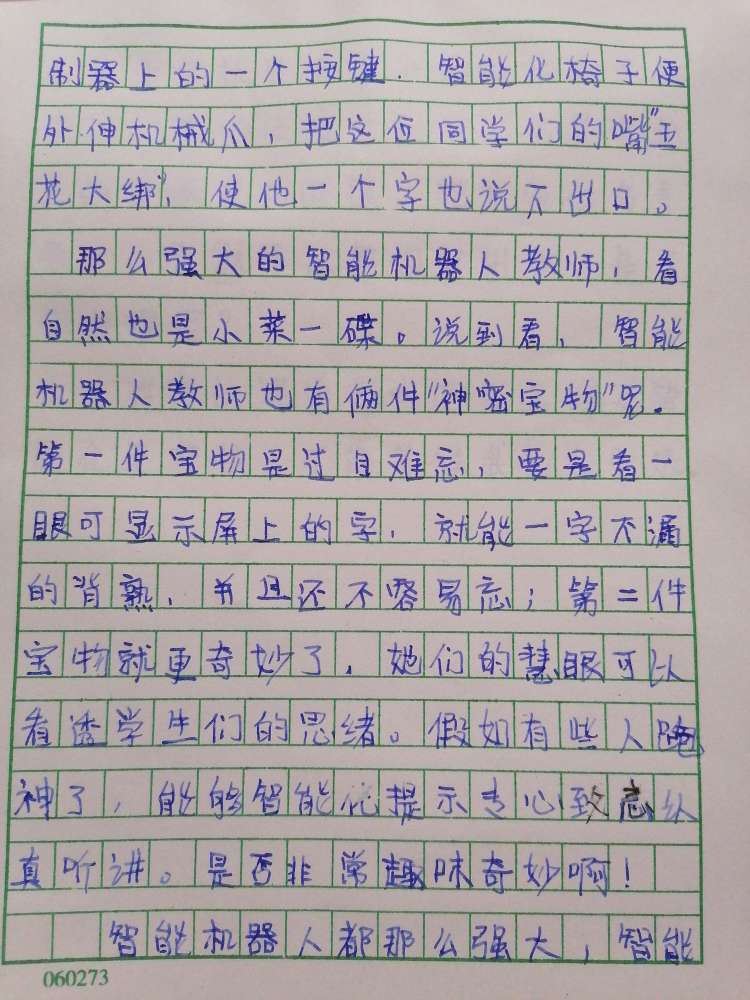 制器上的一个按键,智能化椅子便
外伸机械爪,把这位同学们的嘴“五
花大绑”,使他一个字也说不出口。
那么强大的智能机器人教师,看
自然也是小菜一碟。说到看,智能
机器人教师也有俩件“神密宝物”呢.
第一件宝物是过目难忘,要是看一
眼可显示屏上的字,就能一字不漏
的背熟,并且还不容易忘;第二件
宝物就更奇妙了,她们的慧眼可以
看透学生们的思绪。假如有些人
神了,能够智能化提示专心致志
真听讲。是否非常趣味奇妙啊!
智能机器人都那么强大,智能
060273